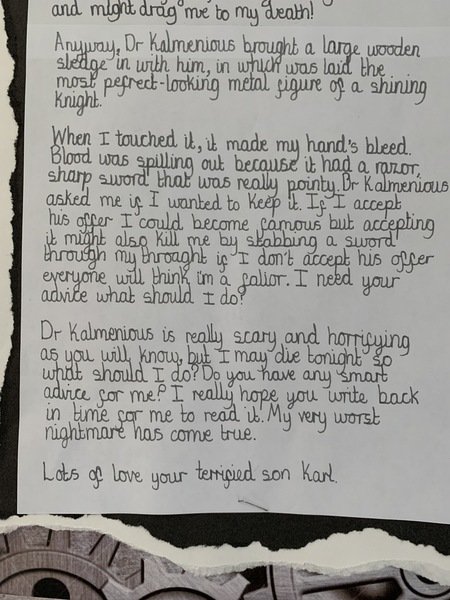 and might drag me to my death!
Anyway, Dr Kalmenious brought a large wooden
sledge in with him, in which was laid the
most pefrect-looking metal figure of a shining
Knight.
When I touched it, it made my hand's bleed.
Blood was spilling out because it had a razor,
sharp sword that was really pointy. Dr Kalmenious
asked me if I wanted to keep it. If I accept
his offer I could become famous but accepting
it might also kill me by stabbing a sword
through my throaght if I don't accept his offer
everyone will think i'm a falior. I need your
advice what should I do?
Dr Kalmenious is really scary and horrifying
as you will know, but I may die tonight so
what should I do? Do you have any smart
advice for me? I really hope you write back
in time for me to read it. My very worst
nightmare has come true.
Lots of love your terrified son Karl.